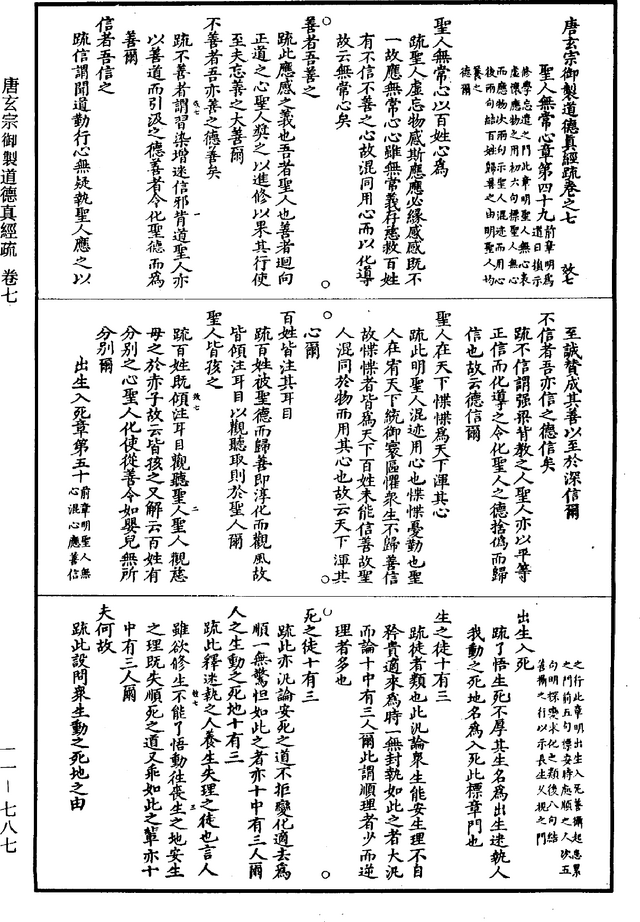 唐玄宗御製道德真經疏卷之七　效七
聖人無常心章第四十九
前章明為
道日損示
修學忘遣之門此章明聖人無心表
虛懷應物之用初六句標聖人無心
而應物次兩句示聖人混迹而用心
後兩句結百姓歸美之由明聖人均
養之
德爾
聖人無常心以百姓心為心
疏聖人虛忘物感斯應應必緣感感既不
一故應無常心心雖無常義存慈救百姓
有不信不善之心故混同用心而以化導
故云無常心矣
善者吾善之
疏此應感之義也吾者聖人也善者迴向
正道之心聖人獎之以進修以果其行使
至夫忘善之大善爾
不善者吾亦善之德善矣
疏不善者謂習染增迷信邪背道聖人亦
以善道而引汲之德善者令化聖德而為
善爾
信者吾信之
疏信謂聞道勤行心無疑執聖人應之以
至誠贊成其善以至於深信爾
不信者吾亦信之德信矣
疏不信謂強梁背教之人聖人亦以平等
正信而化導之令化聖人之德捨偽而歸
信也故云德信爾
聖人在天下惵惵為天下渾其心
疏此明聖人混迹用心也惵惵憂勤也聖
人在宥天下統御寰區懼衆生不歸善信
故惵惵者皆為天下百姓未能信善故聖
人混同於物而用其心也故云天下渾其
心爾
百姓皆注其耳目
疏百姓被聖德而歸善即淳化而觀風故
皆傾注耳目以觀聽取則於聖人爾
聖人皆孩之
疏百姓既傾注耳目觀聽聖人聖人觀慈
母之於赤子故云皆孩之又解云百姓有
分別之心聖人化使從善令如嬰兒無所
分別爾
出生入死章第五十
前章明聖人無
心混心應善信
之行此章明出生入死善攝起應累
之門前五句標安時處順之人次五
句明探變求化之類後八句結
善攝之行以示長生久視之門
出生入死
疏了悟生死不厚其生名為出生迷執人
我動之死地名為入死此標章門也
生之徒十有三
疏徒者類也此汎論衆生能安生理不自
矜貴適來為時一無封執如此之者大汎
而論十中有三人爾此謂順理者少而逆
理者多也
死之徒十有三
疏此亦汎論安死之道不拒變化適去為
順一無驚怛如此之者亦十中有三人爾
人之生動之死地十有三
疏此釋迷執之人養生失理之徒也言人
雖欲修生不能了悟動往喪生之地安生
之理既失順死之道又乖如此之輩亦十
中有三人爾
夫何故
疏此設問衆生動之死地之由
唐玄宗御製道德真經疏　卷七
一一－七八七